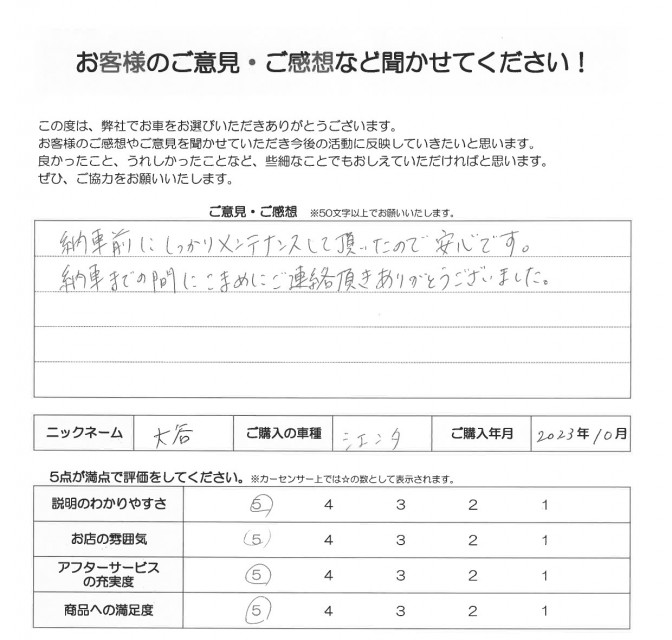 お客様のご意見・ご感想など聞かせてください！
この度は、弊社でお車をお選びいただきありがとうございます。
お客様のご感想やご意見を聞かせていただき今後の活動に反映していきたいと思います。
良かったこと、うれしかったことなど、些細なことでもおしえていただければと思います。
ぜひ、ご協力をお願いいたします。
ご意見・ご感想　※50文字以上でお願いいたします。
納車前にしっかりメンテナンスして頂いたので安心です。
納車までの間にこまめにご連絡頂きありがとうございました。
ニックネーム 大谷 ご購入の車種 シエンタ ご購入年月 2023年10月
5点が満点で評価をしてください。※カーセンサー上では☆の数として表示されます。
説明のわかりやすさ 5 4 3 2 1
お店の雰囲気 5 4 3 2 1
アフターサービス
の充実度 5 4 3 2 1
商品への満足度 5 4 3 2 1